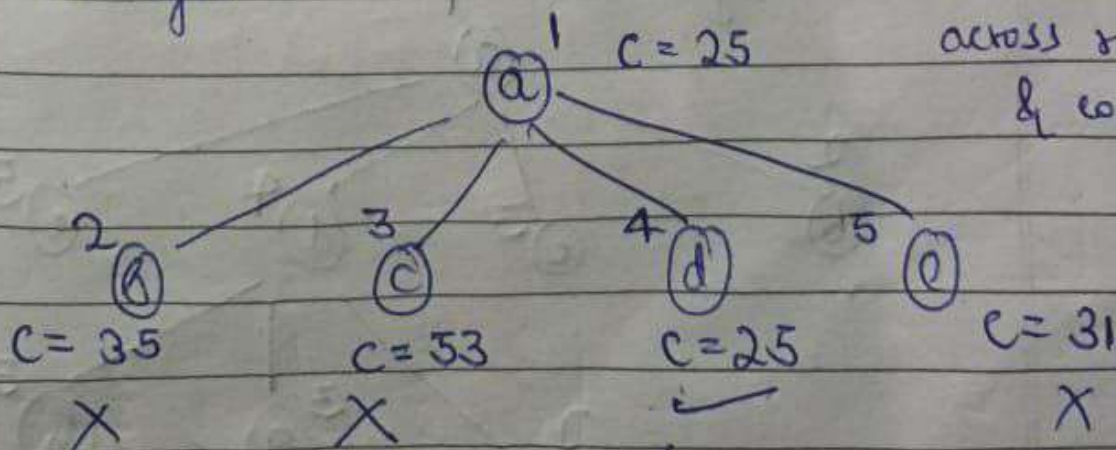 1 C = 25 across
a & co
2 3 4 5
c d e
C = 35 C = 53 C = 25 C = 31
X X ✓ X